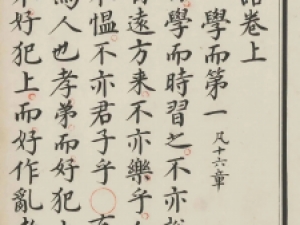 語卷上
學而第一 凡十六章
學而時習之不亦說
有遠方来不亦樂乎
不愠不亦君子乎
爲人也孝弟而好犯上
不好犯上而好作亂者